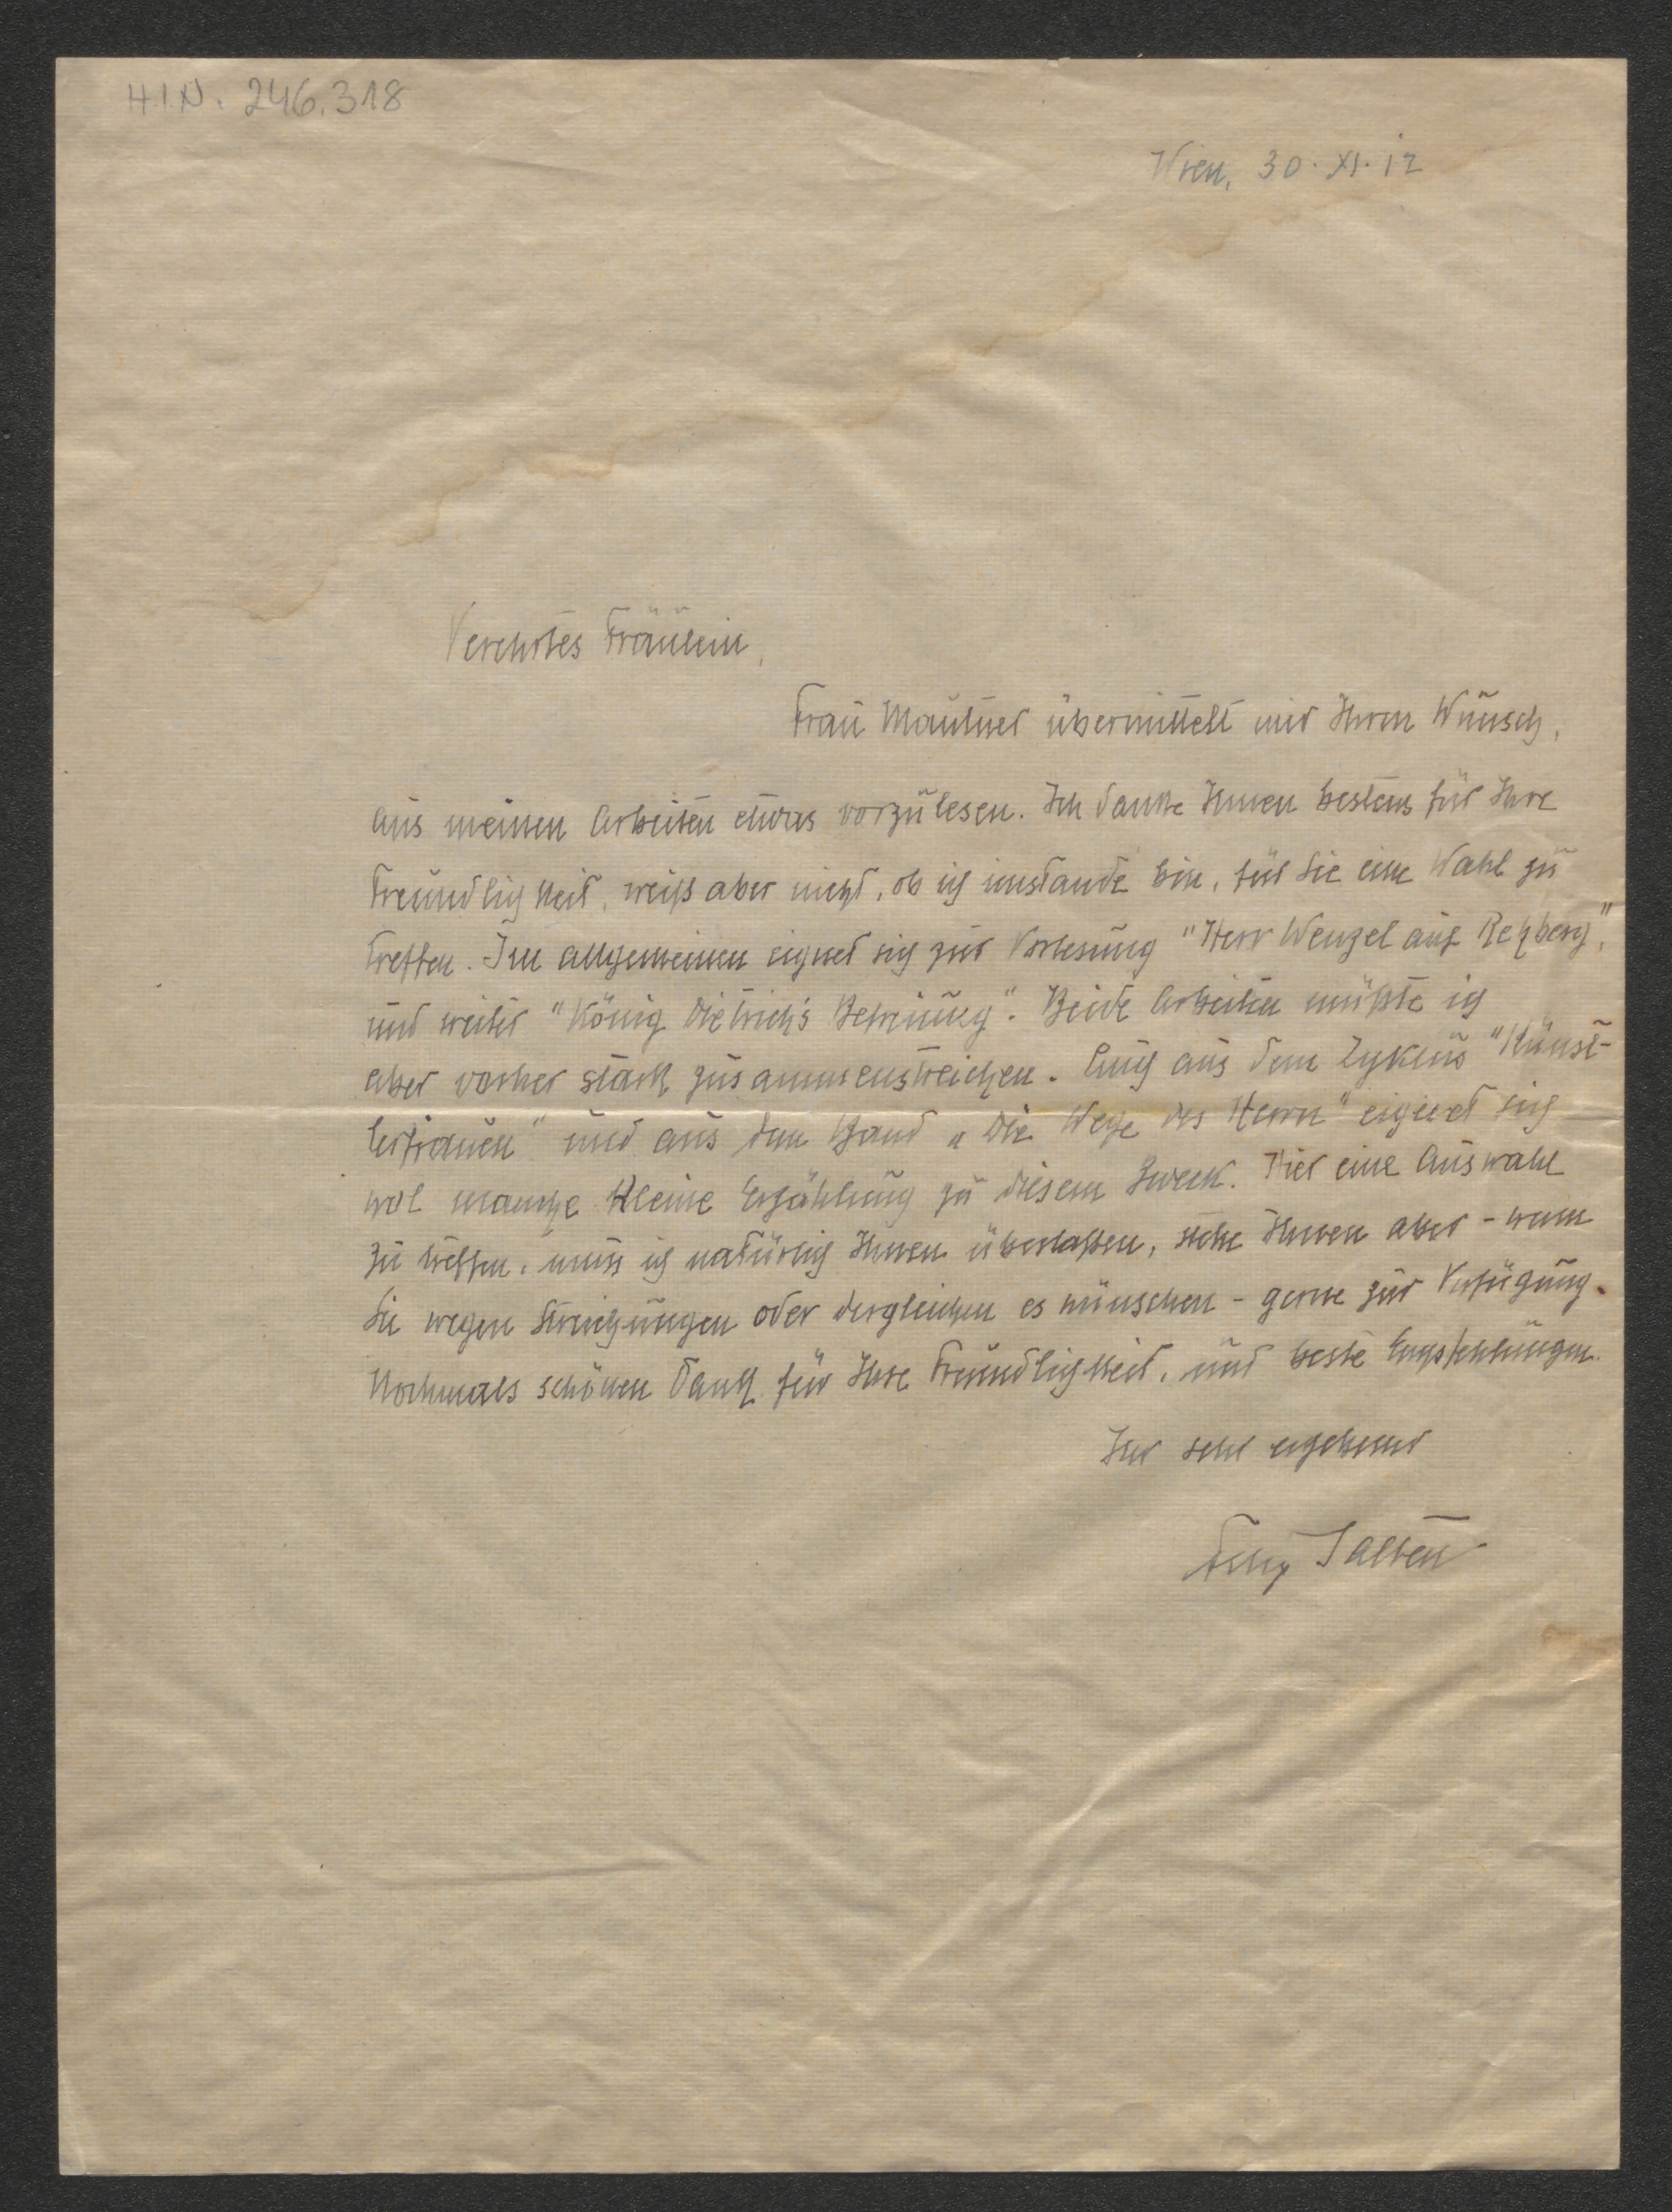 H.I.N. 246.318
Wien, 30. XI. 12
Verehrtes Fräulein,
Frau Mautner übermittelt mir Ihren Wunsch,
aus meinen Arbeiten etwas vorzulesen. Ich danke Ihnen bestens für Ihre
Freundlichkeit, weiß aber nicht, ob ich imstande bin, für Sie eine Wahl zu
treffen. Im allgemeinen eignet sich zur Vorlesung "Herr Wenzel auf Rehberg",
und weiter "König Dietrich's Befreiung". Beide Arbeiten müßte ich
aber vorher stark zusammenstreichen. Auch aus dem Zyklus "Künst-
lerfrauen" und aus dem Band „Die Wege des Herrn" eignet sich
wol manche kleine Erzählung zu diesem Zweck. Hier eine Auswahl
zu treffen, muss ich natürlich Ihnen überlassen, stehe Ihnen aber - wenn
Sie wegen Streichungen oder dergleichen es wünschen - gerne zur Verfügung.
Nochmals schönen Dank für Ihre Freundlichkeit, und beste Empfehlungen.
Ihr sehr ergebener
Felix Salten